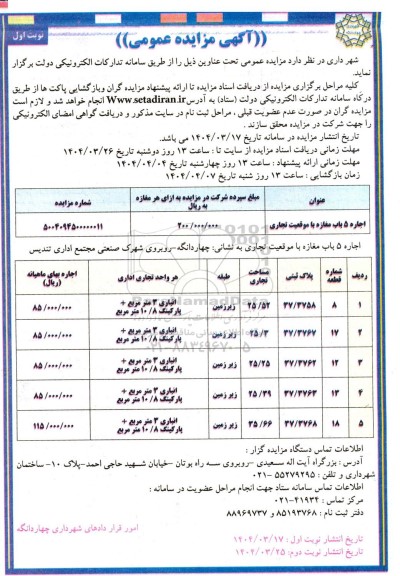 نوبت اول
((آگهی مزایده عمومی))
شهر داری در نظر دارد مزایده عمومی تحت عناوین ذیل را از طریق سامانه تدارکات الکترونیکی دولت برگزار
نماید.
کلیه مراحل برگزاری مزایده از دریافت اسناد مزایده تا ارائه پیشنهاد مزایده گران وبازگشایی پاکت ها از طریق
درگاه سامانه تدارکات الکترونیکی دولت (ستاد) به آدرس Www.setadiran.ir انجام خواهد شد و لازم است
مزایده گران در صورت عدم عضویت قبلی ، مراحل ثبت نام در سایت مذکور و دریافت گواهی امضای الکترونیکی
را جهت شرکت در مزایده محقق سازند .
تاریخ انتشار مزایده در سامانه تاریخ ۱۴۰۴/۰۳/۱۷ می باشد.
مهلت زمانی دریافت اسناد مزایده از سایت تا : ساعت ۱۳ روز دوشنبه تاریخ ۱۴۰۴/۰۳/۲۶
مهلت زمانی ارائه پیشنهاد : ساعت ۱۳ روز چهارشنبه تاریخ ۱۴۰۴/۰۴/۰۴
زمان بازگشایی : ساعت ۱۳ روز شنبه تاریخ ۱۴۰۴/۰۴/۰۷
عنوان مبلغ سپرده شرکت در مزایده به ازای هر مغازه به ریال شماره مزایده
اجاره ۵ باب مغازه با موقعیت تجاری ۲۰۰/۰۰۰/۰۰۰ ۵۰۰۴۰۹۴۵۰۰۰۰۰۰۱۱
اجاره ۵ باب مغازه با موقعیت تجاری به نشانی: چهاردانگه-روبروی شهرک صنعتی مجتمع اداری تندیس
ردیف شماره قطعه پلاک ثبتی مساحت تجاری طبقه هر واحد تجاری اداری اجاره بهای ماهیانه (ریال)
۱ ۸ ۳۷/۳۷۵۸ ۲۵/۵۲ زیرزمین انباری ۳ متر مربع + پارکینگ ۱۰/۸ متر مربع ۸۵/۰۰۰/۰۰۰
۲ ۱۷ ۳۷/۳۷۶۷ ۲۵/۳ زیر زمین انباری ۳ متر مربع + پارکینگ ۱۰/۸ متر مربع ۸۵/۰۰۰/۰۰۰
۳ ۱۲ ۳۷/۳۷۶۲ ۲۵/۲۵ زیر زمین انباری ۳ متر مربع + پارکینگ ۱۰/۸ متر مربع ۸۵/۰۰۰/۰۰۰
۴ ۱۳ ۳۷/۳۷۶۳ ۲۵/۳۹ زیر زمین انباری ۳ متر مربع + پارکینگ ۱۰/۸ متر مربع ۸۵/۰۰۰/۰۰۰
۵ ۱۸ ۳۷/۳۷۶۸ ۳۵/۶۶ زیر زمین انباری ۳ متر مربع + پارکینگ ۱۰/۸ متر مربع ۱۱۵/۰۰۰/۰۰۰
اطلاعات تماس دستگاه مزایده گزار :
آدرس : بزرگراه آیت اله سعیدی -روبروی سه راه بوتان -خیابان شهید حاجی احمد-پلاک ۱۰- ساختمان
شهرداری و تلفن : ۵۵۲۷۹۲۹۵ -۰۲۱
اطلاعات تماس سامانه ستاد جهت انجام مراحل عضویت در سامانه :
مرکز تماس : ۴۱۹۳۴-۰۲۱
دفتر ثبت نام : ۸۵۱۹۳۷۶۸ و ۸۸۹۶۹۷۳۷
امور قرار دادهای شهرداری چهاردانگه
تاریخ انتشار نوبت اول : ۱۴۰۴/۰۳/۱۷
تاریخ انتشار نوبت دوم: ۱۴۰۴/۰۳/۲۵